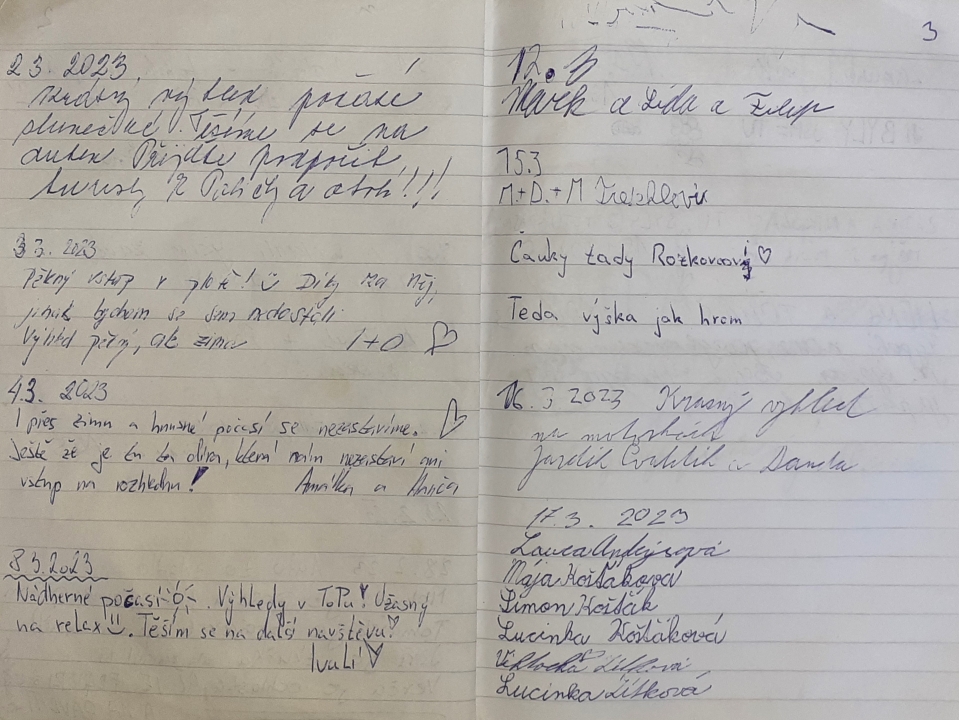 3
2 3. 2023
krásný výhled počasí
slunečné. Těšíme se na
duben Přijďte podpořit
turisty z a okolí!!!
3 3. 2023
Pěkný vstup v plotě! Díky za něj,
jinak bychom se sem nedostali
Výhled pěkný, ale zima I+O
4.3. 2023
I přes zimu a hnusné počasí se nezastavíme.
Ještě že je tu ta díra, která nám nezastaví ani
vstup na rozhlednu! Amálka a
8 3.2023
Nádherné počasí. Výhledy v ToPu! Úžasný
na relax. Těším se na další navštěvu!
Ivulí
12. 3
Márk a Lída a Filip
15.3
M.+D.+M
Čauky tady Rozkovcovi
Teda výška jak hrom
16. 3 2023 Krasný vyhled
na motorkách
Jardík a Danda
17.3. 2023
Laura
Mája Košťáková
Šimon Košťák
Lucinka Košťáková
Lucinka Lišková